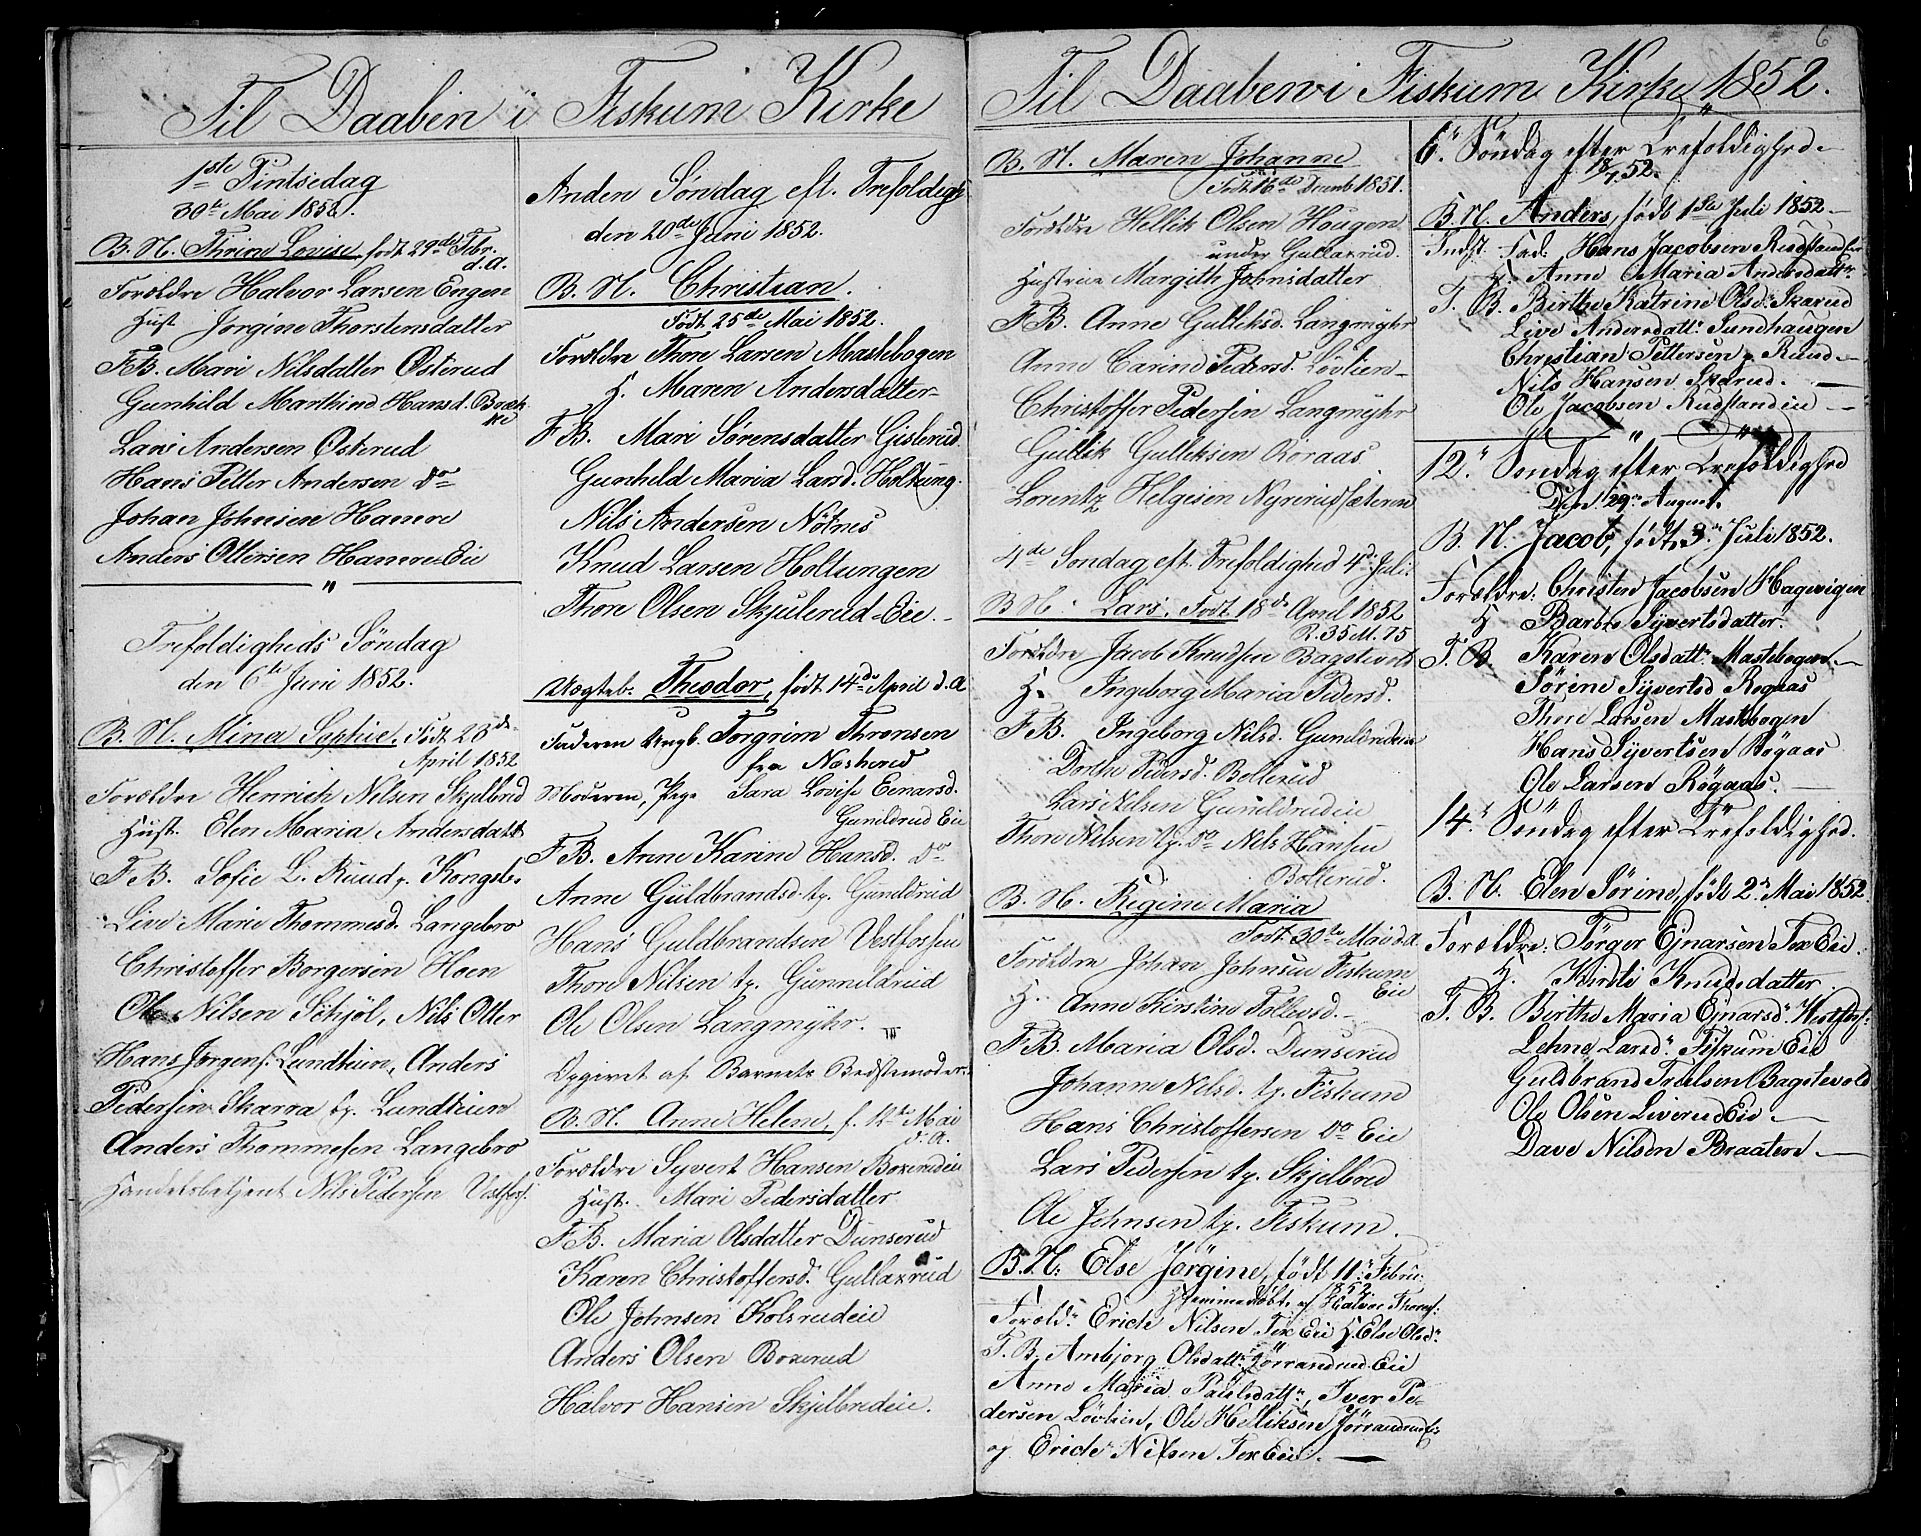 Til Daaben i Fiskum Kirke
1ste Pintsedag
30te Mai 1852.
B. N. Thrine Lovise, født 29de Febr.
d. A.
Forældre Halvor Larsen Engen
Hust Jørgine Thorstensdatter
F.B. Mari Nilsdatter Østerud
Gunhild Marthine Hansd. Bræk
ke
Lars Andersen Østerud
Hans Petter Andersen do
Johan Johnsen Hamre
Anders Ottersen Hamre Eie
"
Trefoldigheds Søndag
den 6te Juni 1852.
B. N. Minea Sophie. Født 23de
April 1852
Forældre Henrich Nilsen Skjelbred
Hust. Elen Maria Andersdatt
F.B. Sofie L. Ruud, Kongsb.
Live Marie Thommesd. Langebro
Christoffer Borgersen Hoen
Ole Nilsen Nils Otter
Hans Jørgens. Lundteien, Anders
Pedersen Skarra tj. Lundteien
Anders Thommesen Langebro
Handelsbetjent Nils Pedersen Vestfos.
Anden Søndag eft. Trefoldigh
den 20de Juni 1852.
B. N. Christian.
Født 25de Mai 1852.
Forældre Thore Larsen Mastebogen
H. Maren Andersdatter
F B. Mari Sørensdatter Gislerud
Gunhild Maria Larsd. Holtung.
Nils Andersen Nøtnes
Knud Larsen Holtungen
Thore Olsen Skjulerud-Eie.
Uægteb. Theodor, født 14de April d. A
Faderen Ungk. Torgrim Thronsen
fra Nøsterud
Moderen, Pige Sara Lovise Einarsd.
Gunildrud Eie
F B. Anne Karine Hansd. do
Anne Guldbrandsd. tj. Gunildrud
Hans Guldbrandsen Vestfossen
Thore Nilsen tj. Gunneldrud
Ole Olsen Langmyhr.
Opgivet af Barnets Bedstemoder.
B. N. Anne Helene, f. 12te Mai
d. A.
Forældre Syvert Hansen Boxerudeie
Hust. Mari Pedersdatter
F B. Maria Olsdatter Dunserud
Karen Christoffersd. Gullaxrud
Ole Johnsen Kolsrudeie
Anders Olsen Boxerud
Halvor Hansen Skjelbredeie.
6
Til Daaben i Fiskum Kirke 1852.
B. N. Maren Johanne
Født 16de Decemb 1851.
Forældre Hellik Olsen Hougen
under Gullaxrud.
Hustrue Margith Johnsdatter
F B. Anne Gulliksd. Langmyhr
Anne Carine Pedersd. Løvlien
Christoffer Pedersen Langmyhr
Gullik Gulliksen Roraas.
Lorentz Helgesen Nyrerudsæteren
4de Søndag eft. Trefoldighed 4de Juli.
B N. Lars, Født 18de April 1852
R. 35 M. 75
Forældre Jacob Knudsen Bagstevold
H. Ingeborg Maria Pedersd.
F B. Ingeborg Nilsd. Gunildrudeie
Dorthe Pedersd. Bollerud
Lars Nilsen Gunildrudeie
Thore Nilsen tj. do Nils Hansen
Bollerud.
B. N. Regine Maria
Født 30te Mai d. A
Forældre Johan Johnsen Fiskum
Eie
H. Anne Kirstine Tollevsd.
F B. Maria Olsd. Dunserud
Johanne Nilsd. tj. Fiskum
Hans Christoffersen do Eie
Lars Pedersen tj. Skjelbred
Ole Johnsen tj. Fiskum.
B. N: Else Jørgine, født 11. Febru:
1852
Hjemmedøbt af Halvor Thores:
Foræld: Erich Nilsen Fex Eie H. Else Olsd:
F. B. Ambjorg Olsdatt: Jørrandrud Eie
Anne Maria Paulsdatt:, Iver Pe-
dersen Løvlien, Ole Helliksen Jørrandrud Eie
og Erich Nilsen Fex Eie.
6. Søndag efter Trefoldighed
18/7 52.
B. N. Anders, født 1ste Juli 1852
Indst. Fad. Hans Jacobsen Rudstandeie
H. Anne Maria Andersdatt:
F. B. Birthe Katrine Olsd: Skarud
Live Andersdatt: Sundhaugen
Christian Pettersen, Ruud
Nils Hansen Skarud.
Ole Jacobsen Rudstandeie
12. Søndag efter Trefoldighed
Den 29. August.
B. N. Jacob, født 3. Juli 1852.
Forældre: Christen Jacobsen Hagevigen
H Barbro Syvertsdatter.
F. B. Karen Olsdatt: Mastebogen
Sørine Syvertsd Røgaas
Thore Larsen Mastebogen
Hans Syvertsen Røgaas
Ole Larsen Røgaas.
14. Søndag efter Trefoldighed.
B. N. Elen Sørine, født 2. Mai 1852
Forældre: Tørger Ejnarsen Fex Eie.
H. Kirsti Knudsdatter.
F. B. Birthe Maria Ejnarsd: Vestfos:
Lehne Larsd: Fiskum Eie
Guldbrand Truelsen Bagstevold
Ole Olsen Liverud Eie
Dave Nilsen Braaten